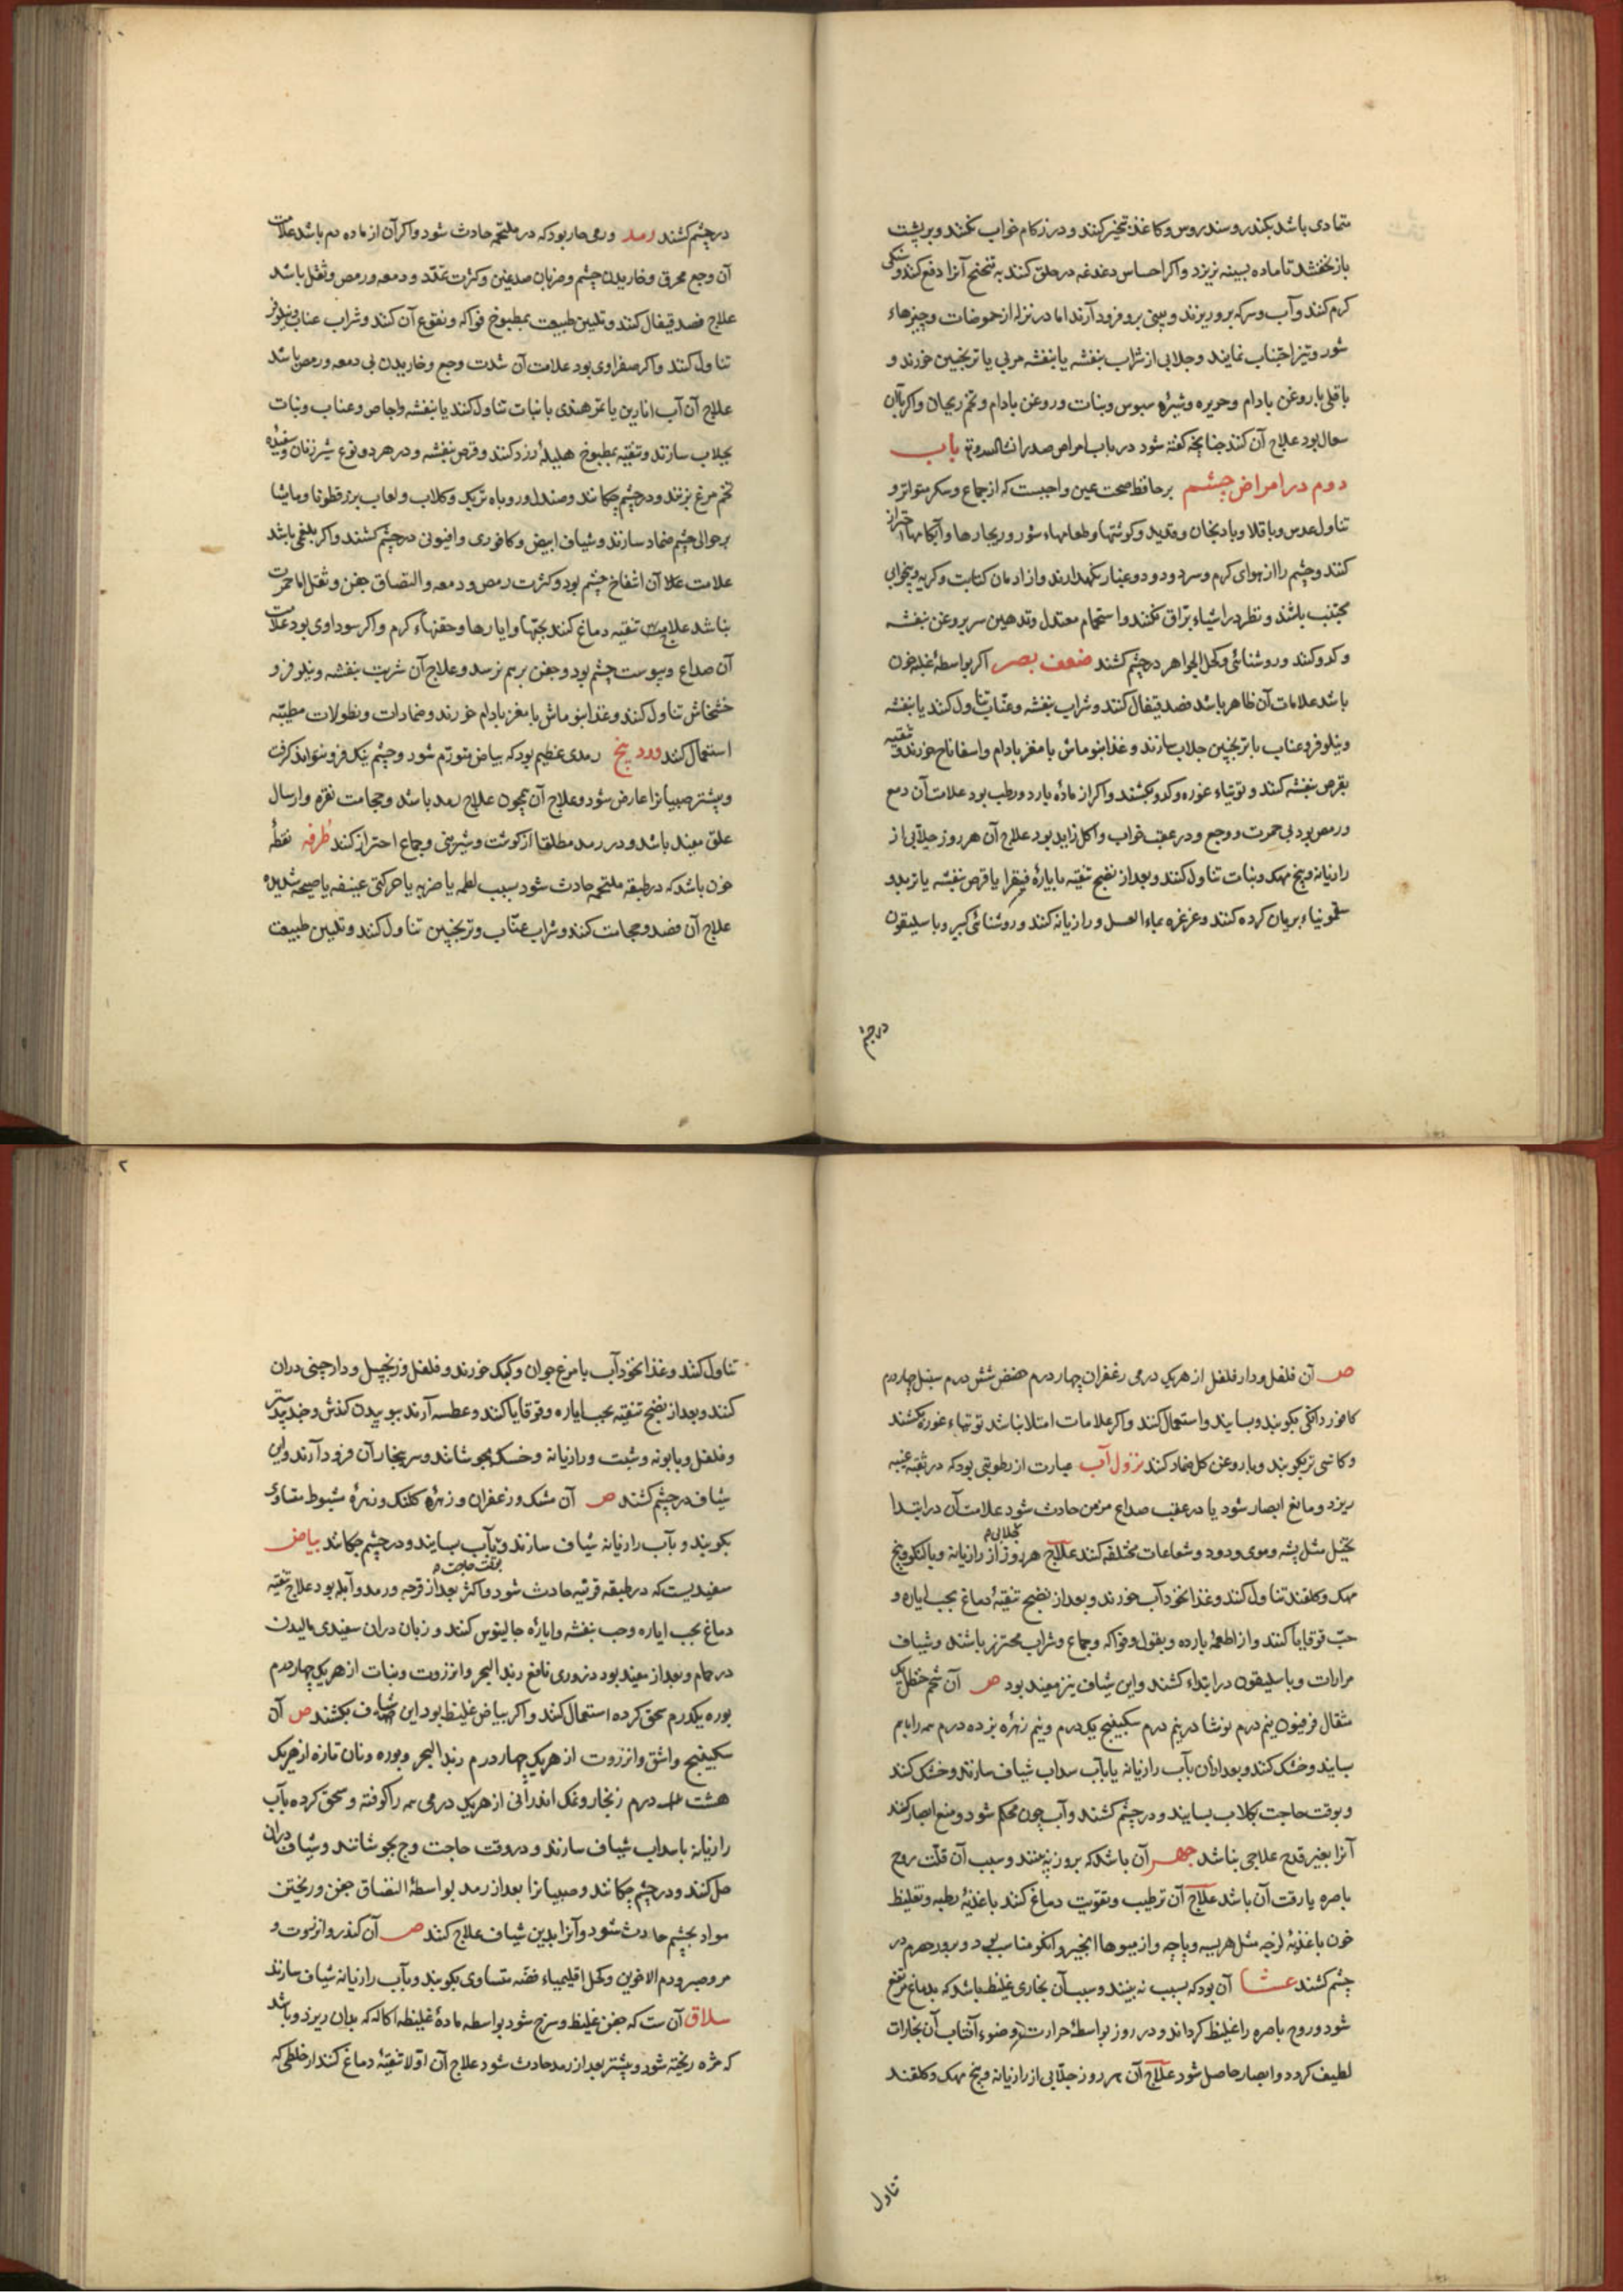 متمادی باشد بکندر و سندروس و کاغذ تبخیر کنند و در زکام خواب نکنند و بر پشت
باز نخفتند تا ماده بسینه نریزد و اگر احساس دغدغه در حلق کنند به تنحنح آنرا دفع کنند و
گرم کنند و آب و سرکه برو ریزند و بینی برو فرود آرند اما در نزله از حموضات و چیزهاء
شور و تیز اجتناب نمایند و جلابی از شراب بنفشه یا بنفشه مربی یا ترنجبین خورند و
باقلی با روغن بادام و حریره و شیره سبوس و نبات و روغن بادام و تخم ریحان و اگر با آن
سعال بود علاج آن کنند چنانچه گفته شود در باب امراض صدر انشاالله و تع باب
دوم در امراض چشم بر حافظ صحت عین واجبست که از جماع و سکر متواتر و
تناول عدس و باقلا و بادنجان و قدید و گوشتها و طعامهاء شور و ریچارها و آبکامها احتراز
کنند و چشم را از هوای گرم و سرد و دود و غبار نگهدارند و از ادمان کتابت و گریه و بیخوابی
مجتنب باشند و نظر در اشیاء براق نکنند و استحمام معتدل و تدهین سر بروغن بنفشه
و کدو کنند و روشنائی و کحل الجواهر در چشم کشند ضعف بصر اگر بواسطهٔ غلبه خون
باشد علامات آن ظاهر باشد فصد قیفال کنند و شراب بنفشه و عناب تناول کنند یا بنفشه
و نیلوفر و عناب با ترنجبین جلاب سازند و غذا بنو ماش با مغز بادام و اسفاناخ خورند و تنقیه
بقرص بنفشه کنند و توتیاء غوره و کدو بکشند و اگر از مادهٔ بارد و رطب بود علامات آن دمع
و رمص بود بی حمرت و وجع و در عقب خواب و اکل زاید بود علاج آن هر روز جلابی از
رازیانه و بیخ مهک و نبات تناول کنند و بعد از نضج تنقیه بایارهٔ فیقرا یا قرص بنفشه یا تربد و
سقمونیاء بریان کرده کنند و غرغره بماء العسل و رازیانه کنند و روشنائی کبیر و باسلیقون
در چشم
در چشم کشند رمد ورمی حار بود که در ملتحمه حادث شود و اگر آن از ماده دم باشد علامت
آن وجع محرق و خاریدن چشم و ضربان صدغین و کثرت تمدد و دمعه و رمص و ثقل باشد
علاج فصد قیفال کنند و تلیین طبیعت بمطبوخ فواکه و نقوع آن کنند و شراب عناب و نیلوفر
تناول کنند و اگر صفراوی بود علامت آن شدت وجع و خاریدن بی دمعه و رمص باشد
علاج آن آب انارین یا تمر هندی با نبات تناول کنند یا بنفشه و اجاص و عناب و نبات
بجلاب سازند و تنقیه بمطبوخ هلیلهٔ زرد کنند و قرص بنفشه و در هر دو نوع شیر زنان و سفیده
تخم مرغ بزنند و در چشم چکانند و صندل و روباه تربک و گلاب و لعاب برزقطونا و مامیثا
بر حوالی چشم ضماد سازند و شیاف ابیض و کافوری و افیونی در چشم کشند و اگر بلغمی باشد
علامت آن انتفاخ چشم بود و کثرت رمص و دمعه و التصاق جفن و ثقل اما حمرت
نباشد علاجش تنقیه دماغ کنند بحبها و ایارها و حقنهاء گرم و اگر سوداوی بود علامت
آن صداع و یبوست چشم بود و جفن بر هم نرسد و علاج آن شربت بنفشه و نیلوفر و
خشخاش تناول کنند و غذا بنو ماش با مغز بادام خورند و ضمادات و نطولات مرطبه
استعمال کنند وردینج رمدی عظیم بود که بیاض متورم شود و چشم نیک فرو نتواند گرفت
و بیشتر صبیانرا عارض شود و علاج آن همچون علاج رمد باشد و حجامت نقره و ارسال
علق مفید باشد و در رمد مطلقا از گوشت و شیرینی و جماع احتراز کنند طرفه نقطهٔ
خون باشد که در طبقه ملتحمه حادث شود سبب لطمه یا ضربه یا حرکتی عنیفه یا صیحه شدیده
علاج آن فصد و حجامت کنند و شراب عناب و ترنجبین تناول کنند و تلیین طبیعت
ص آن فلفل و دارفلفل از هریک درمی زعفران چهار درم حضض شش درم سنبل چهار درم
کافور دانگی بکوبند و بسایند و استعمال کنند و اگر علامات امتلا نباشد توتیاء غوره کشند
و کاسنی تر بکوبند و با روغن گل ضماد کنند نزول آب عبارت از رطوبتی بود که در ثقبه عنبیه
ریزد و مانع ابصار شود یا در عقب صداع مزمن حادث شود علامت آن در ابتدا
تخیل مثل پشه و موی و دود و شعاعات مختلفه کنند علاج هر روز جلابی از رازیانه و بالنگو و بیخ
مهک و گلقند تناول کنند و غذا نخودآب خورند و بعد از نضج تنقیهٔ دماغ بحب ایاره و
حب قوقایا کنند و از اطعمهٔ بارده و بقول و فواکه و جماع و شراب محترز باشند و شیاف
مرارات و باسلیقون در ابتداء کشند و این شیاف نیز مفید بود ص آن شحم حنظل یک
مثقال فرفیون نیم درم نوشادر نیم درم سکبینج یک درم و نیم زهرهٔ بز ده درم همه را باهم
بسایند و خشک کنند و بعد از آن بآب رازیانه یا بآب سداب شیاف سازند و خشک کنند
و بوقت حاجت بگلاب بسایند و در چشم کشند و آب چون محکم شود و منع ابصار کند
آنرا بغیر قدح علاجی نباشد جهر آن باشد که بروز نه بینند و سبب آن قلت روح
باصره یا رقت آن باشد علاج آن ترطیب و تقویت دماغ کنند باغذیهٔ رطبه و تغلیظ
خون باغذیهٔ لزجه مثل هریسه و پاچه و از میوها انجیر و انگور مناسب بود و برود حصرم در
چشم کشند عشا آن بود که بشب نه بینند و سبب آن بخاری غلیظ باشد که بدماغ مرتفع
شود و روح باصره را غلیظ گرداند و در روز بواسطهٔ حرارت و ضوء آفتاب آن بخارات
لطیف گردد و ابصار حاصل شود علاج آن هر روز جلابی از رازیانه و بیخ مهک و گلقند
تناول
۲
تناول کنند و غذا نخودآب با مرغ جوان و کبک خورند و فلفل و زنجبیل و دارچینی در آن
کنند و بعد از نضج تنقیه بحب ایاره و قوقایا کنند و عطسه آرند ببوییدن کندش و جندبیدستر
و فلفل و بابونه و شبت و رازیانه و خسک بجوشانند و سر ببخار آن فرود آرند و این
شیاف در چشم کشند ص آن مشک و زعفران و زهرهٔ کلنک و زهرهٔ شبوط متساوی
بکوبند و بآب رازیانه شیاف سازند و بآب بسایند بوقت حاجت و در چشم چکانند بیاض
سفیدیست که در طبقه قرنیه حادث شود و اکثر بعد از قرحه و رمد و آبله بود علاج تنقیه
دماغ بحب ایاره و حب بنفشه و ایارهٔ جالینوس کنند و زبان در آن سفیدی مالیدن
در حمام و بعد از مفید بود ذروری نافع زبد البحر و انزروت و نبات از هریک چهار درم
بوره یکدرم سحق کرده استعمال کنند و اگر بیاض غلیظ بود این شیاف بکشند ص آن
سکبینج و اشق و انزروت از هریک چهار درم زبد البحر و بوره و نان تازه از هریک
هشت درم زنجار و نمک اندرانی از هریک درمی همه را کوفته و سحق کرده بآب
رازیانه یا سداب شیاف سازند و در وقت حاجت وج بجوشانند و شیاف در آن
حل کنند و در چشم چکانند و صبیانرا بعد از رمد بواسطهٔ التصاق جفن و ریختن
مواد بچشم حادث شود و آنرا بدین شیاف علاج کنند ص آن کندر و انزروت و
مر و صبر و دم الاخوین و کحل اقلیمیاء فضه متساوی بکوبند و بآب رازیانه شیاف سازند
سلاق آنست که جفن غلیظ و سرخ شود بواسطه مادهٔ غلیظه اکاله که بدان ریزد و باشد
که مژه ریخته شود و بیشتر بعد از رمد حادث شود علاج آن اولا تنقیهٔ دماغ کنند از خلطی که